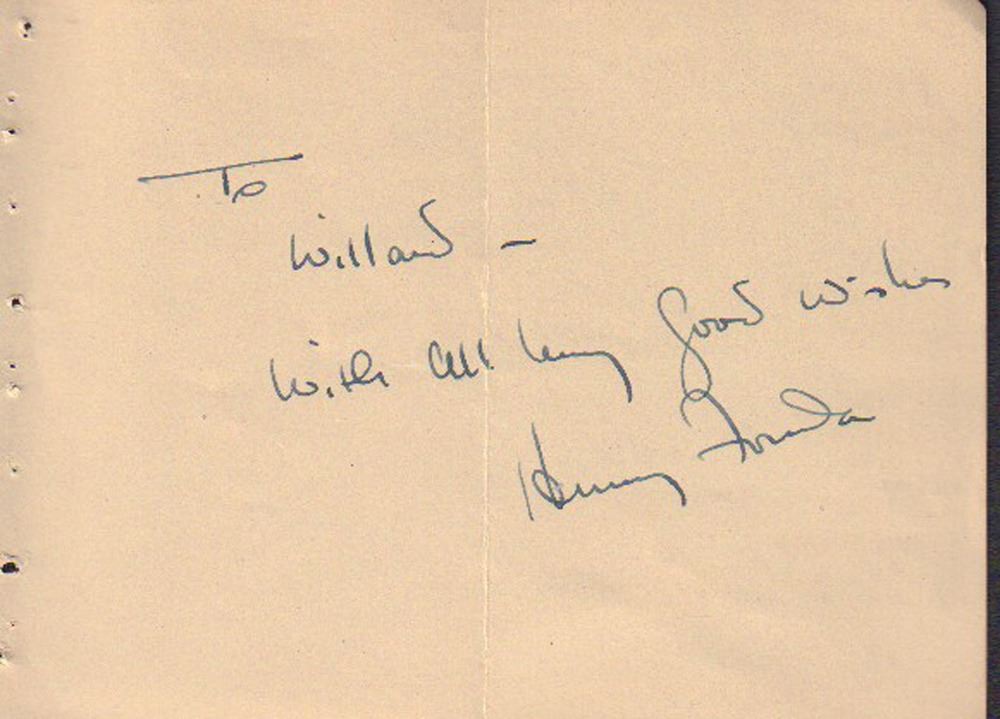 To
Willard –
With all my good wishes
Henry Fonda